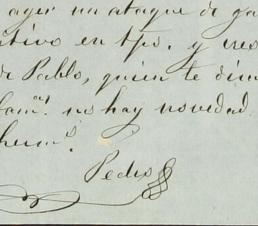 ayer un ataque de ga
ativo en tpo. y cres
de Pablo, quien te dim
fam.ª no hay novedad.
herm.º
Pedro